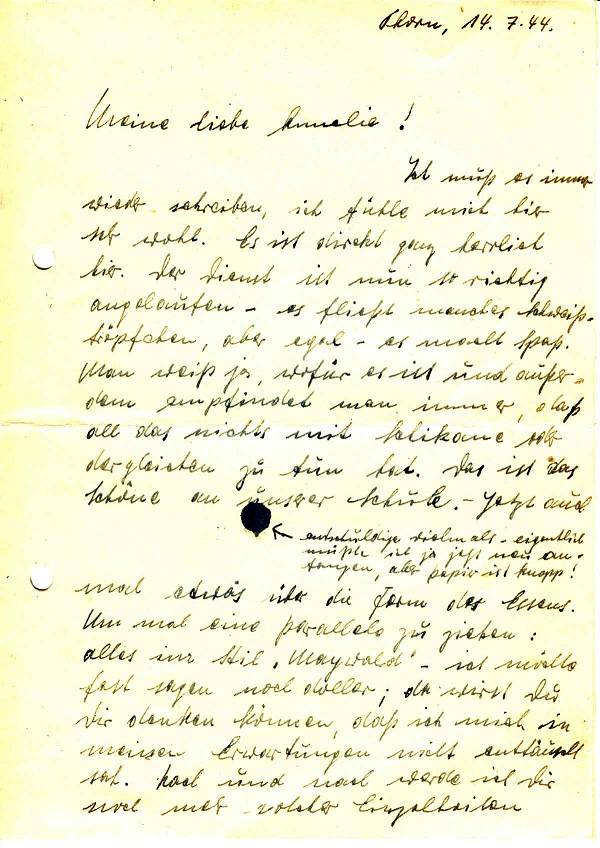 Thorn, 14.7.44.
Meine liebe Annelie!
Ich muß es immer
wieder schreiben, ich fühle mich hier
sehr wohl. Es ist direkt ganz herrlich
hier. Der Dienst ist nun so richtig
angelaufen - es fließt manches Schweiß-
tröpfchen, aber egal - es macht Spaß.
Man weiß ja, wofür es ist und außer-
dem empfindet man immer, daß
all das nichts mit Schikane oder
dergleichen zu tun hat. Das ist das
Schöne an unserer Schule. - Jetzt auch
entschuldige vielmals - eigentlich
müßte ich ja jetzt neu an-
fangen, aber Papier ist knapp!
mal etwas über die Form des Essens.
Um mal eine Parallele zu ziehen:
alles im Stil "Maywald" - ich möchte
fast sagen noch doller; da wirst Du
Dir denken können, daß ich mich in
meinen Erwartungen nicht enttäuscht
hat. Nach und nach werde ich Dir
noch mehr solcher Einzelheiten